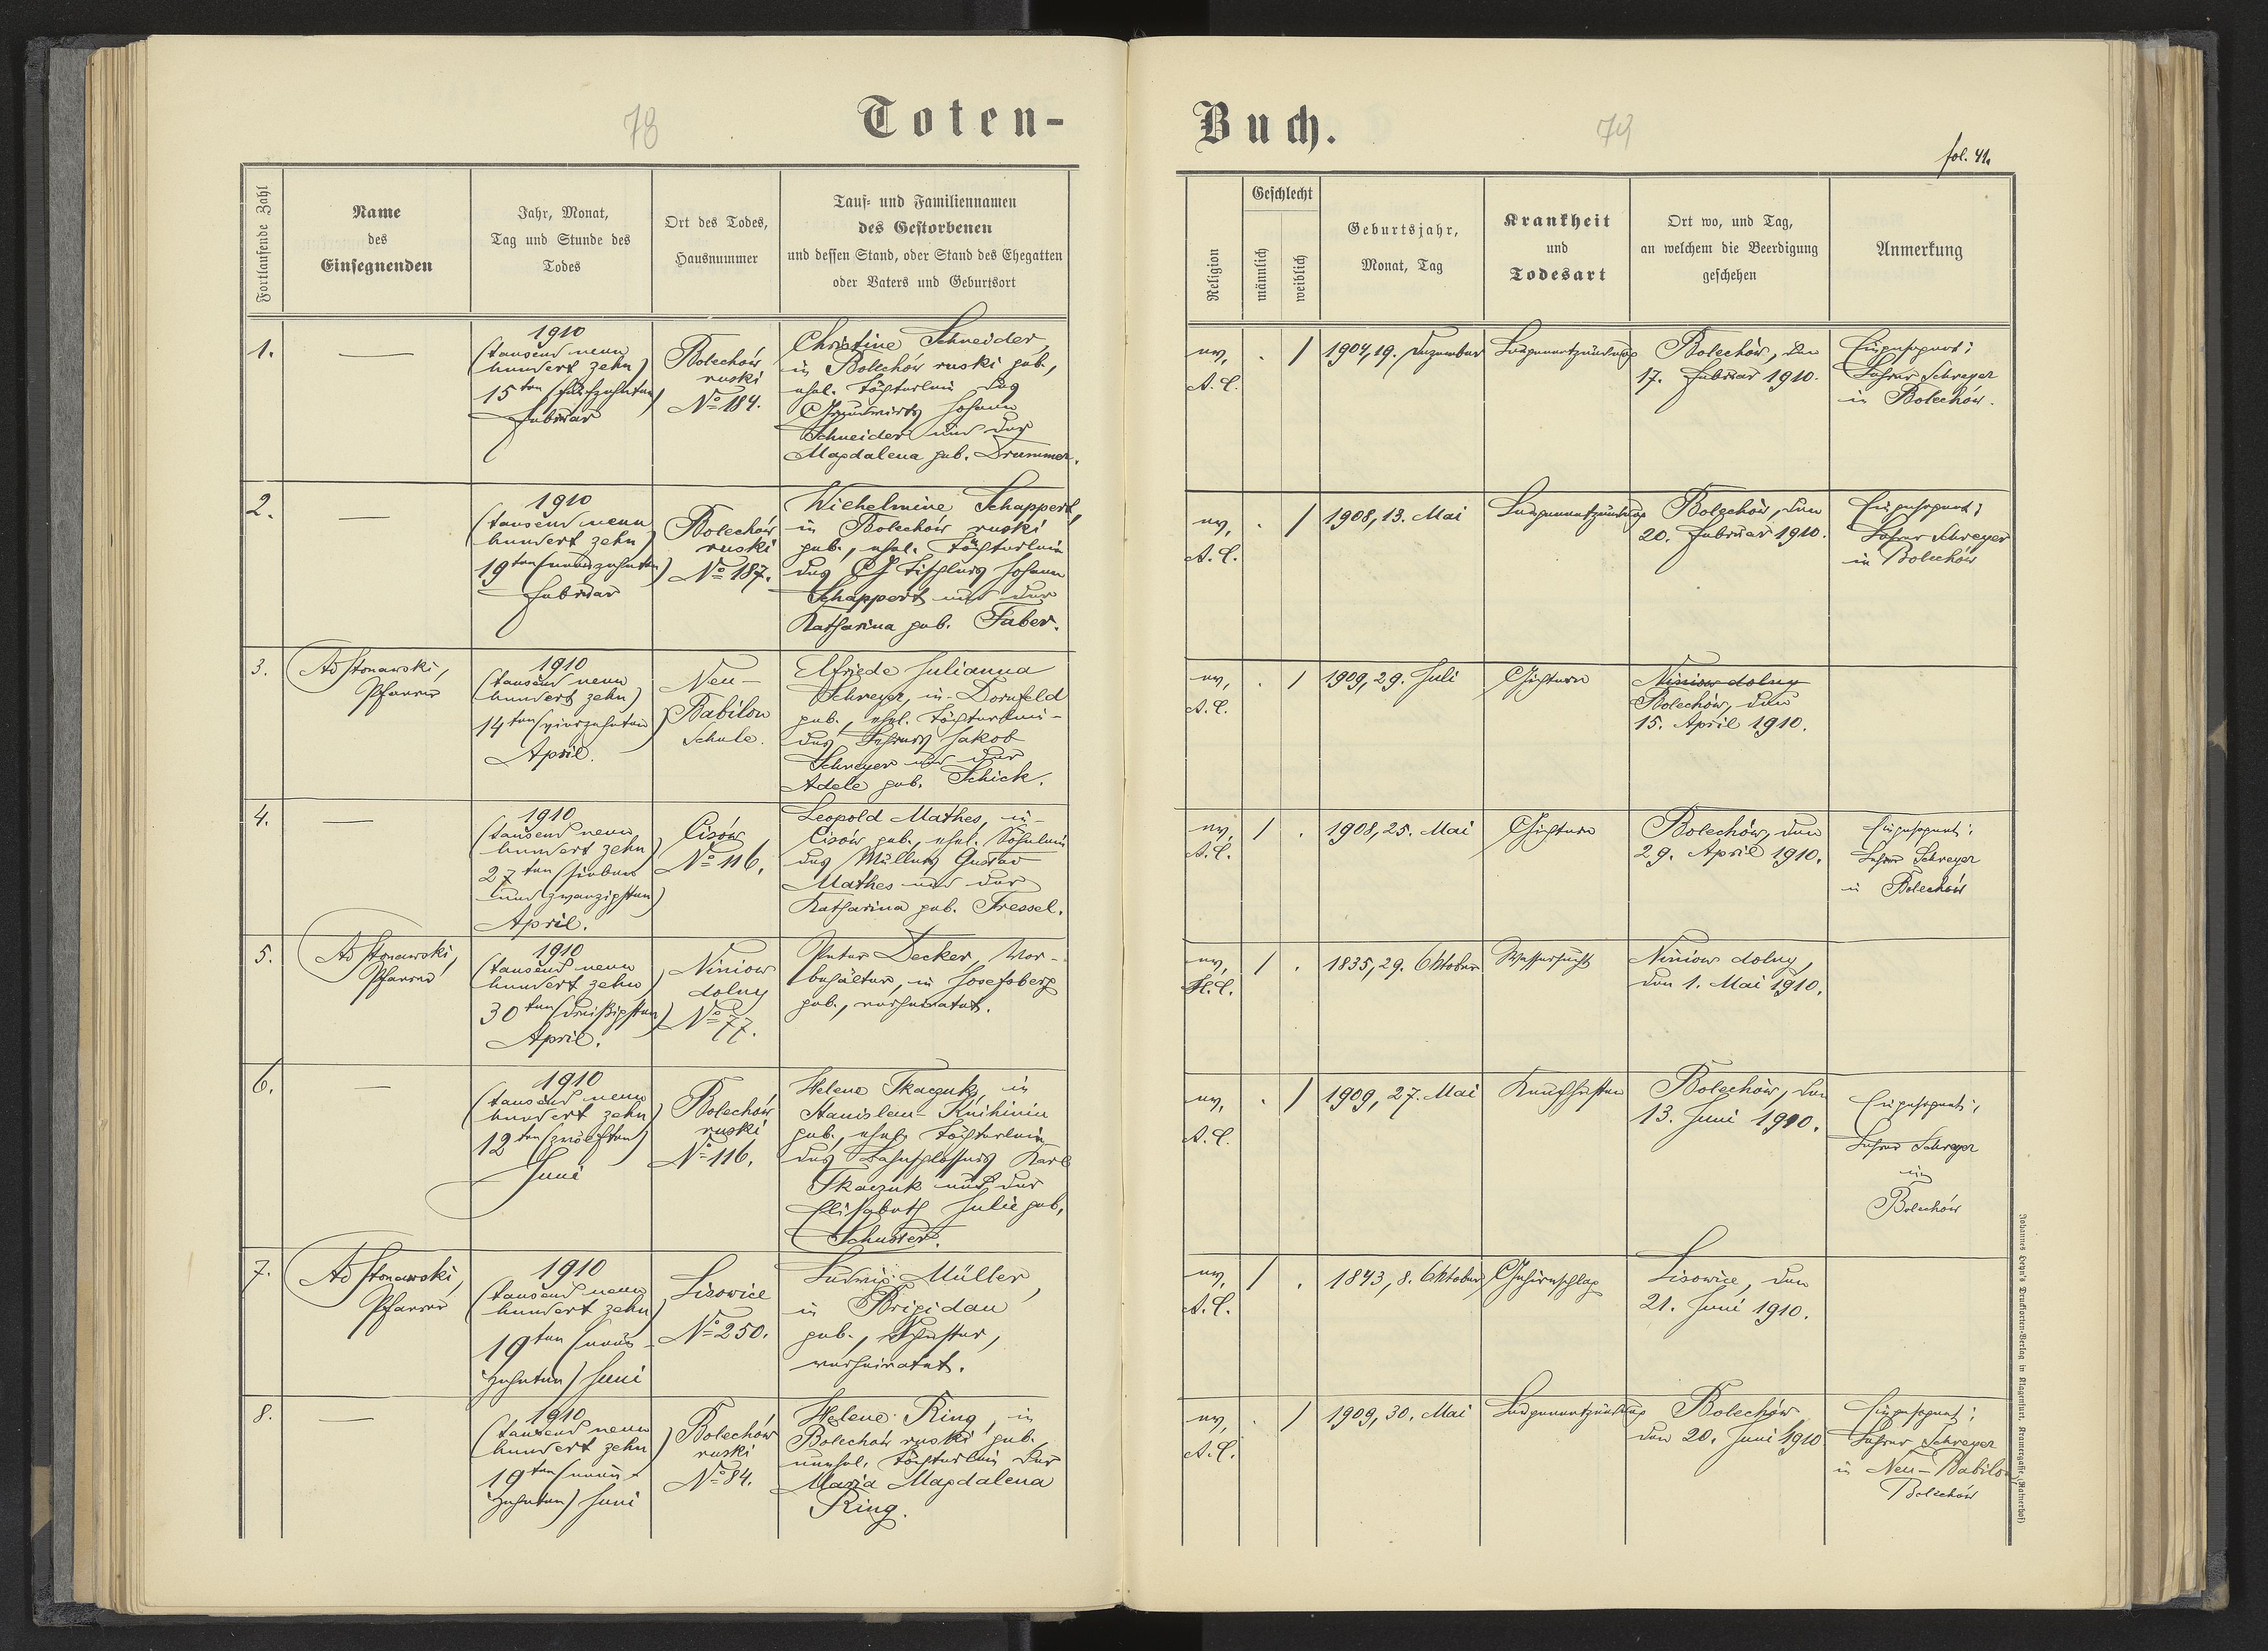 78
Toten-
Fortlaufende Zahl
Name
des
Einsegnenden
Jahr, Monat,
Tag und Stunde des
Todes
Ort des Todes,
Hausnummer
Tauf- und Familiennamen
des Gestorbenen
und dessen Stand, oder Stand des Ehegatten
oder Vaters und Geburtsort
1.
—
1910
(tausend neun
hundert zehn)
15ten (fünfzehnten)
Februar
Bolechów
ruski
No 184.
Christine Schneider,
in Bolechów ruski geb.,
ehel. Töchterlein des
Grundwirts Johann
Schneider und der
Magdalena geb. Drummer.
2.
—
1910
(tausend neun
hundert zehn)
19ten (neunzehnten)
Februar
Bolechów
ruski
No 187.
Wilhelmine Schappert,
in Bolechów ruski
geb., ehel. Töchterlein
des Tischlers Johann
Schappert und der
Katharina geb. Faber.
3.
Ad Stonawski,
Pfarrer
1910
(tausend neun
hundert zehn)
14ten (vierzehnten)
April.
Neu-
Babilon
Schule.
Elfriede Julianna
Schreyer, in Dornfeld
geb., ehel. Töchterlein
des Lehrers Jakob
Schreyer und der
Adele geb. Schick.
4.
—
1910
(tausend neun
hundert zehn)
27ten (sieben
und zwanzigsten)
April.
Cisów
No 116.
Leopold Mathes, in
Cisów geb., ehel. Söhnlein
des Müllers Gustav
Mathes und der
Katharina geb. Fressel.
5.
Ad Stonawski,
Pfarrer
1910
(tausend neun
hundert zehn)
30ten (dreißigsten)
April.
Niniow
dolny
No 77.
Peter Decker, Vor-
behälter, in Josefsberg
geb., verheiratet.
6.
—
1910
(tausend neun
hundert zehn)
12ten (zwölften)
Juni
Bolechów
ruski
No 116.
Helene Tkaczuk, in
Stanislau-Knihinin
geb., ehel. Töchterlein
des Bahnschlossers Karl
Tkaczuk und der
Elisabeth Julie geb.
Schuster.
7.
Ad Stonawski,
Pfarrer
1910
(tausend neun
hundert zehn)
19ten (neun-
zehnten) Juni
Lisowice
No 250.
Ludwig Müller,
in Brigidau
geb., Schuster,
verheiratet.
8.
—
1910
(tausend neun
hundert zehn)
19ten (neun-
zehnten) Juni
Bolechów
ruski
No 84.
Helene Ring, in
Bolechów ruski geb.
unehel. Töchterlein der
Maria Magdalena
Ring.
Buch.
79
fol. 41.
Religion
Geschlecht
männlich
weiblich
Geburtsjahr,
Monat, Tag
Krankheit
und
Todesart
Ort wo, und Tag,
an welchem die Beerdigung
geschehen
Anmerkung
ev.
A. C.
. /
1904, 19. Dezember
Lungenentzündung
Bolechów, den
17. Februar 1910.
Eingesegnet:
Lehrer Schreyer
in Bolechów.
ev.
A. C.
. /
1908, 13. Mai
Lungenentzündung
Bolechów, den
20. Februar 1910.
Eingesegnet:
Lehrer Schreyer
in Bolechów
ev.
A. C.
. /
1909, 29. Juli
Gichtern
Niniow dolny
Bolechów, den
15. April 1910.
ev.
A. C.
/ .
1908, 25. Mai
Gichtern
Bolechów, den
29. April 1910.
Eingesegnet:
Lehrer Schreyer
in Bolechów
ev.
H. C.
/ .
1835, 29. Oktober
Wassersucht
Niniow dolny,
den 1. Mai 1910.
ev.
A. C.
. /
1909, 27. Mai
Keuchhusten
Bolechów, den
13. Juni 1910.
Eingesegnet:
Lehrer Schreyer
in
Bolechów
ev.
A. C.
/ .
1843, 8. Oktober
Gehirnschlag
Lisowice, den
21. Juni 1910.
ev.
A. C.
. /
1909, 30. Mai
Lungenentzündung
Bolechów
den 20. Juni 1910
Eingesegnet:
Lehrer Schreyer
in Neu-Babilon,
Bolechów
Johannes Heyn's Drucksorten-Verlag in Klagenfurt, Kramergasse (Rainerhof)